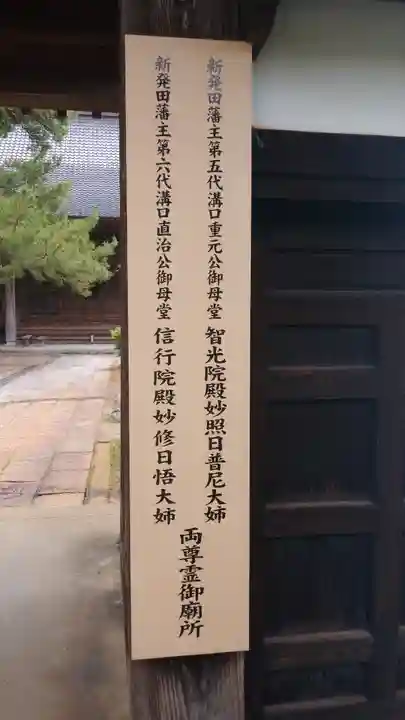 新発田藩主第五代溝口重元公御母堂 智光院殿妙照日普尼大姉
新発田藩主第六代溝口直治公御母堂 信行院殿妙修日悟大姉
両尊霊御廟所